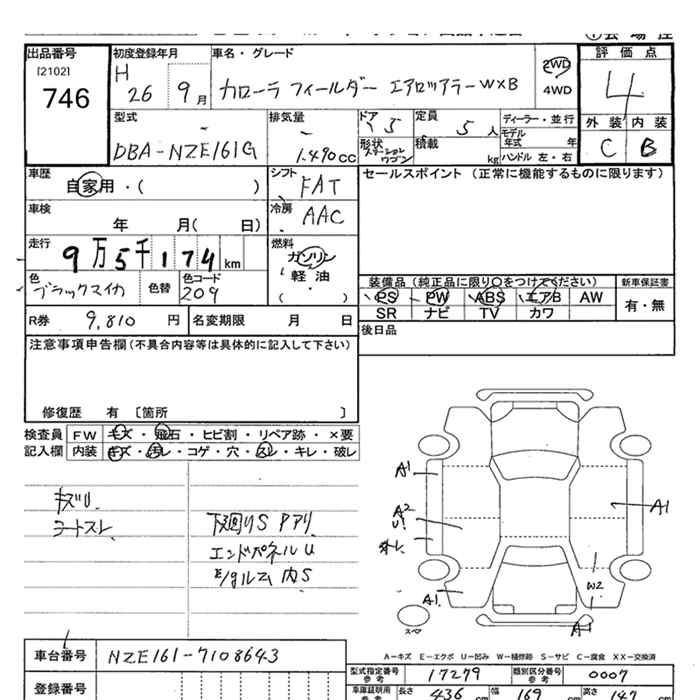 出品番号
[2102]
746
初度登録年月
H
26 9月
車名・グレード
カローラ フィールダー エアロツアラーW×B
2WD
4WD
評価点
4
外装 内装
C B
型式
DBA-NZE161G
排気量
1.490cc
ドア
5
形状
ステーションワゴン
定員
5人
積載
kg
ディーラー・並行
モデル年式 年
ハンドル 左・右
車歴
自家用・( )
シフト
FAT
車検
年 月( 日)
冷房
AAC
走行
9万5千174km
燃料
ガソリン
軽油
( )
色
ブラックマイカ
色替
色コード
209
R券 9,810円
名変期限 月 日
セールスポイント (正常に機能するものに限ります)
装備品 (純正品に限り○をつけてください)
PS PW ABS エアB AW
SR ナビ TV カワ
新車保証書
有・無
後日品
注意事項申告欄(不具合内容等は具体的に記入して下さい)
修復歴 有 〔箇所 〕
検査員
記入欄
FW キズ・飛石・ヒビ割・リペア跡・×要
内装 キズ・汚レ・コゲ・穴・スレ・キレ・破レ
キズU
コートスレ
下廻りS Pアリ
エンドパネルU
E/gルーム内S
A1
A2
U1
A1
A1
W2
A1
スペア
A-キズ E-エクボ U-凹み W-補修跡 S-サビ C-腐食 XX-交換済
車台番号
NZE161-7108643
登録番号
型式指定番号
参考
17279
類別区分番号
参考
0007
車庫証明用
参考
長さ 436 cm
幅 169 cm
高さ 147 cm